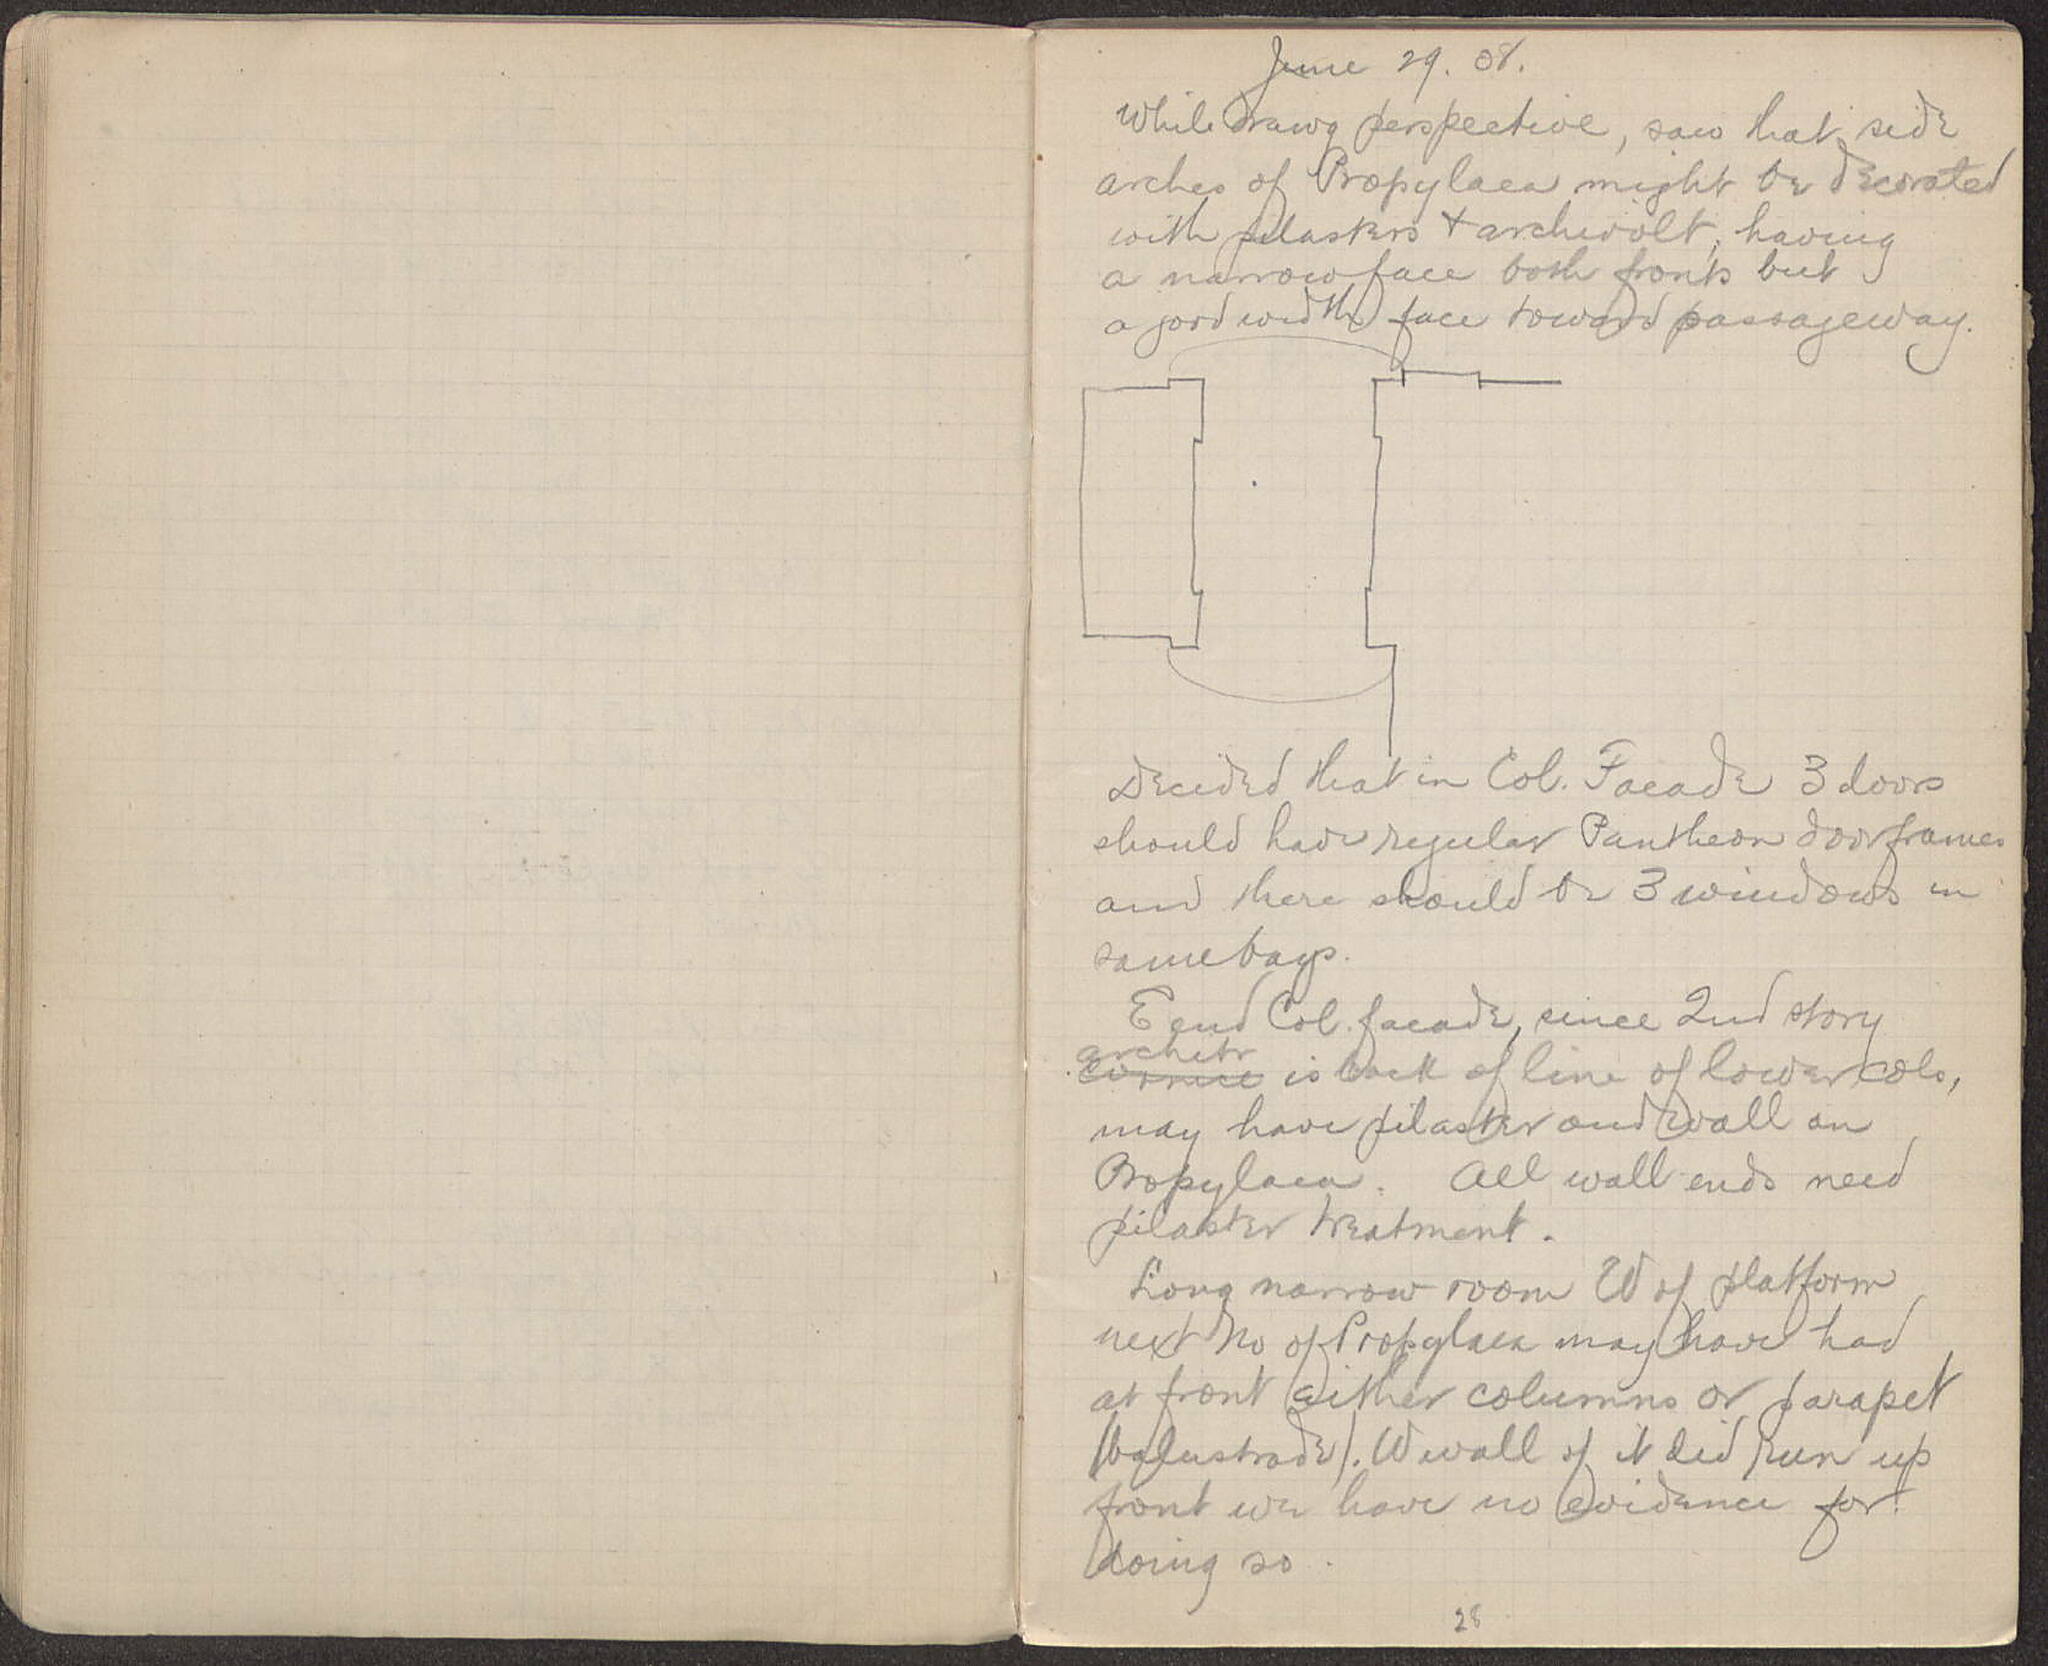 June 29. 08.
While drawg perspective, saw that side
arches of Propylaea might be decorated
with pilasters + archivolt, having
a narrow face both fronts but
a good width face toward passageway.
Decided that in Col. Facade 3 doors
should have regular Pantheon doorframes
and there should be 3 windows in
same bays.
E end Col. facade, since 2nd story
architr
cornice is back of line of lower cols,
may have pilaster and wall on
Propylaea. All wall ends need
pilaster treatment.
Long narrow room W of platform
next No of Propylaea may have had
at front either columns or parapet
(balustrade). W wall of it did run up
front we have no evidence for
doing so.
28